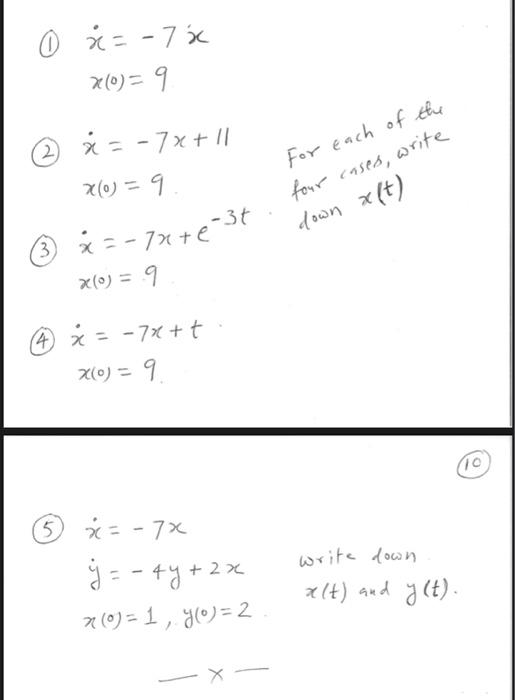 ① ẋ = -7x
x(0) = 9
② ẋ = -7x + 11
x(0) = 9.
③ ẋ = -7x + e^{-3t}.
x(0) = 9
④ ẋ = -7x + t.
x(0) = 9.
For each of the
four cases, write
down x(t)
⑩
⑤ ẋ = -7x
ẏ = -4y + 2x
x(0) = 1, y(0) = 2.
write down
x(t) and y(t).
— x —